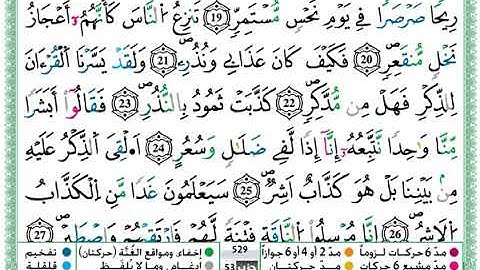 رِيحًا صَرْصَرًا فِي يَوْمِ نَحْسٍ مُّسْتَمِرٍّ ﴿19﴾ تَنزِعُ النَّاسَ كَأَنَّهُمْ أَعْجَازُ
نَخْلٍ مُّنقَعِرٍ ﴿20﴾ فَكَيْفَ كَانَ عَذَابِي وَنُذُرِ ﴿21﴾ وَلَقَدْ يَسَّرْنَا الْقُرْءَانَ
لِلذِّكْرِ فَهَلْ مِن مُّدَّكِرٍ ﴿22﴾ كَذَّبَتْ ثَمُودُ بِالنُّذُرِ ﴿23﴾ فَقَالُوٓا۟ أَبَشَرًا
مِّنَّا وَاحِدًا نَّتَّبِعُهُۥٓ إِنَّآ إِذًا لَّفِي ضَلَٰلٍ وَسُعُرٍ ﴿24﴾ أَءُلْقِيَ الذِّكْرُ عَلَيْهِ
مِنۢ بَيْنِنَا بَلْ هُوَ كَذَّابٌ أَشِرٌ ﴿25﴾ سَيَعْلَمُونَ غَدًا مَّنِ الْكَذَّابُ
الْأَشِرُ ﴿26﴾ إِنَّا مُرْسِلُوا۟ النَّاقَةِ فِتْنَةً لَّهُمْ فَارْتَقِبْهُمْ وَاصْطَبِرْ ﴿27﴾
مدّ 6 حركات لزوماً مدّ 2 أو 4 أو 6 جوازاً 529 إخفاء، ومواقع الغُنَّة (حركتان) تفخيم
مدّ مشبع 6 حركات مدّ حركتان إدغام، وما لا يُلفَظ قلقلة